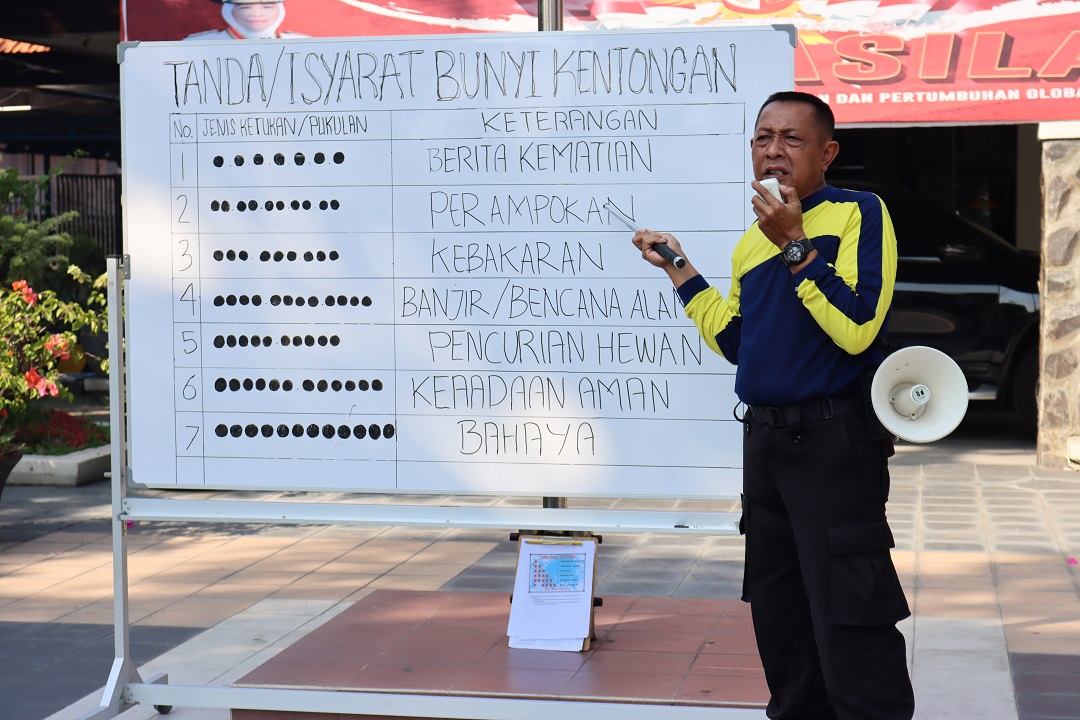 ASILA
DAN PERTUMBUHAN GLOBA
TANDA/ISYARAT BUNYI KENTONGAN
No. JENIS KETUKAN/PUKULAN KETERANGAN
1 BERITA KEMATIAN
2 PERAMPOKAN
3 KEBAKARAN
4 BANJIR/BENCANA ALAM
5 PENCURIAN HEWAN
6 KEAADAAN AMAN
7 BAHAYA